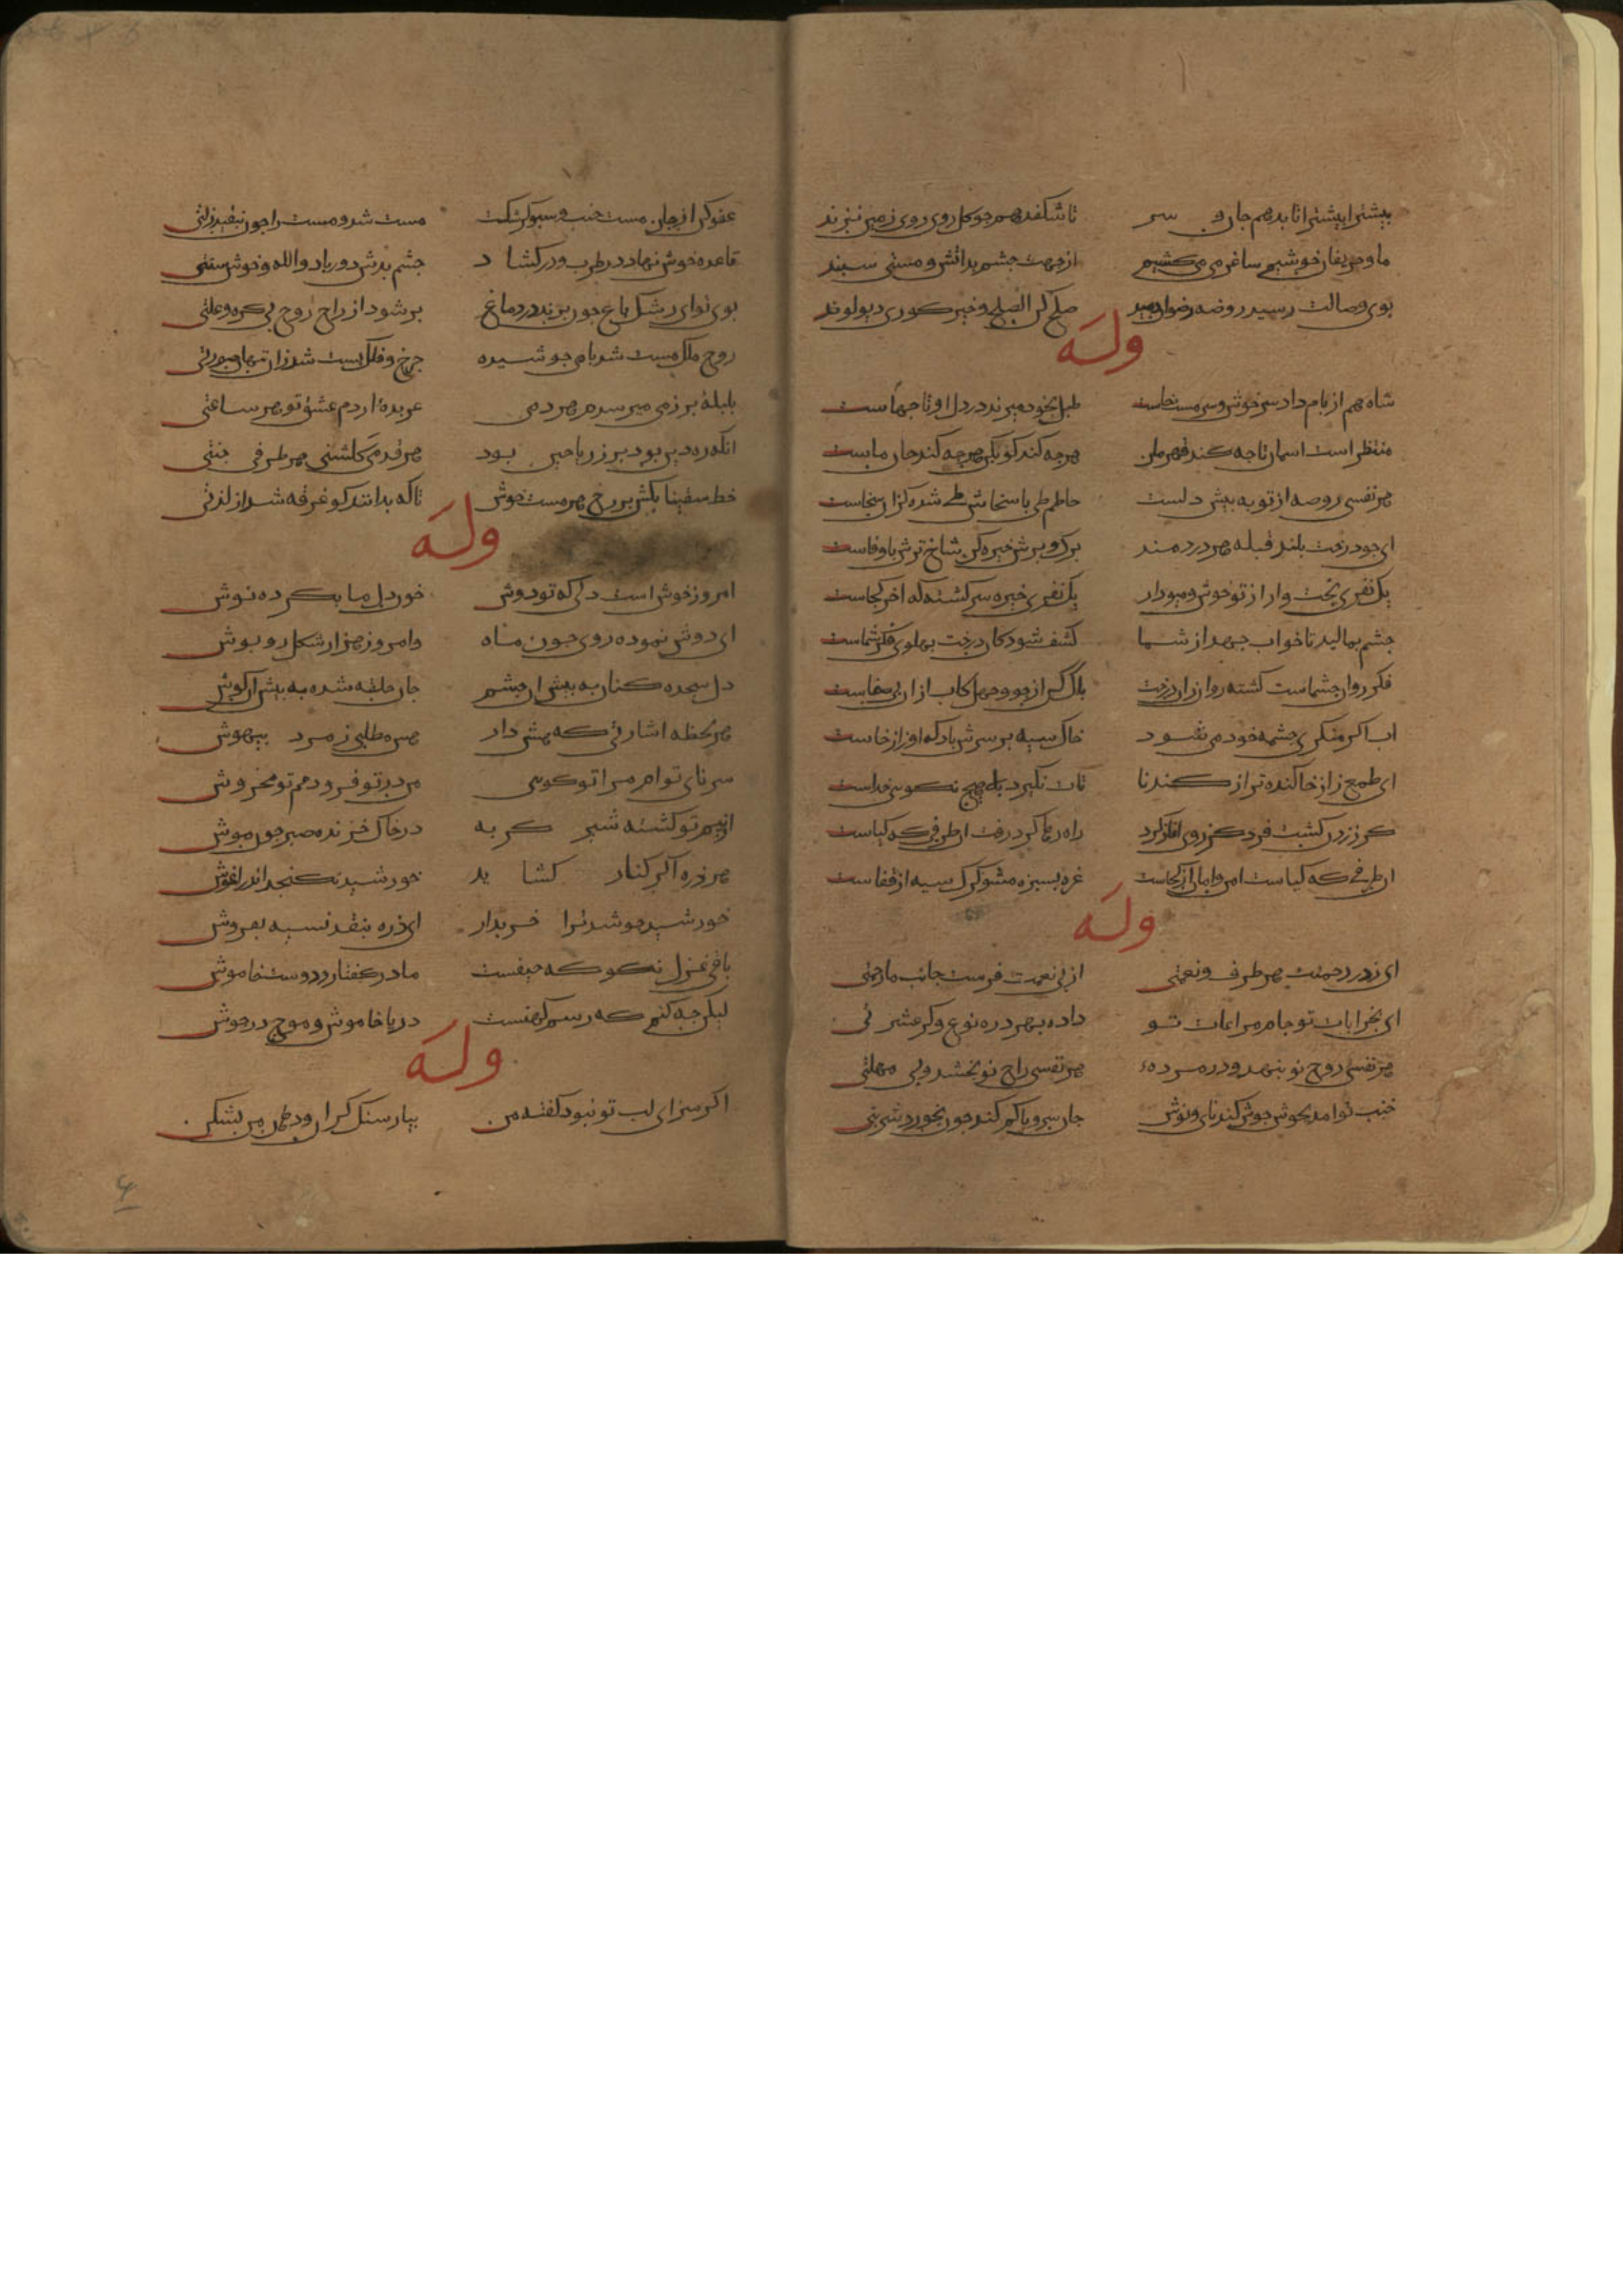 بیشتر ا بیشتر ا تا بدهم جان و سر تا شکفد همجو کل روی زمین
ما و حریفان خوشیم ساغر می می‌کشیم از جهت جشم بد آتش و مستی سبند
بوی وصالت رسید روضه رضوان صلح کن الصلح خیر کوری دیو لوند
وله
شاه هم از بام داد سرخوش و سرمست خاست طبل بخود میزند در دل او تا جهاست
منتظر است اسمان تا جه کند قهرمان هرجه کند کو بکن هرجه کند جان ماست
هر نفسی روضه از تو به بیش دلست حاطم طی با سخاش طی شد
ای جو درخت بلند قبله هر دردمند برک و برش خیره کن شاخ ترش باوفاست
یک نفری بخت وار از تو خوش و میودار یک نفری خیره سر کشته که اخر کجاست
جشم بمالید تا خواب جهد از شما کشف شود کان درخت بهلوی فکر شماست
فکر روان جشماست کشته روان زان درخت از جو و جهل کاب از ان
اب اکر منکر جشمه خود می‌شود خاک سیه بر سرش باد که
ای طمع زاز خا کنده تر از کندنا تات نکیرد بلا هیج نکویی خداست
کز زدن کشت فرد کز روی اغاز کرد راه رها کرد و رفت ان طرفی که کیاست
ان طرفی که کیاست امن و امان از کجاست غره بسبزه مشو کرک سیه از قفاست
وله
ای زد ز رحمتت هر طرف و نعمتی از بی نعمت فرست جانب ما رحمتی
ای بخرابات تو جام مراعات تو داده بهر ذره نوع دکر عشرتی
هر نفسی روح نو بنهد در مرده هر نفسی راح نو بخشد و بی مهلتی
خنب تو امد بجوش جوش کند نای و نوش جان سر و با کم کند جون بخورد شربتی
عفو کن از جان مست خنب و سبو کر شکست مست شد و مست را جون نفید زلتی
قاعده خوش نهاد در طرب و در کشاد جشم بدش دور باد والله خوش سنتی
بوی تو ای رشک باغ جون بزند در دماغ بر شود از راح روح بی کره و علتی
روح ملک مست شد بام جوشیده جرخ و فلک بست شد زان صورتی
بلبله بر زمی میرسدم هر دمی عربده ارد م عشق تو هر ساعتی
انکه ره دین بود بر ز ریاحین بود هر قدمی کلشنی هر طرفی جنتی
خط سقینا بکش بر رخ هر مست خوش تا که بدانند کو غرقه شد از لذتی
وله
امروز خوش است دل که تو دوش خون دل ما بکرده نوش
ای دوش نموده روی جون ماه و امروز هزار شکل روبوش
دل سجده کنان به بیش ان جشم جان حلقه شده به بیش ان کوش
هر لحظه اشارتی که هش دار هین طلبی ز مرد بیهوش
سرنای توام مرا تو کویی من در تو فرو دمم تو مخروش
از بیم تو کشته شیر کربه در خاک خزنده صبر جون موش
هر ذره اکر کنار کشاید خورشید نکنجد اندر اغوش
خورشید جو شد ترا خریدار ای ذره بنقد نسیه بفروش
باقی غزل نکو که حیفست ما در کفتار و دوست خاموش
لیکن جه کنم که رسم کهنست دریا خاموش و موج در جوش
وله
اکر سزای لب تو نبود کفته من بیار سنک کران و دهان من بشکن